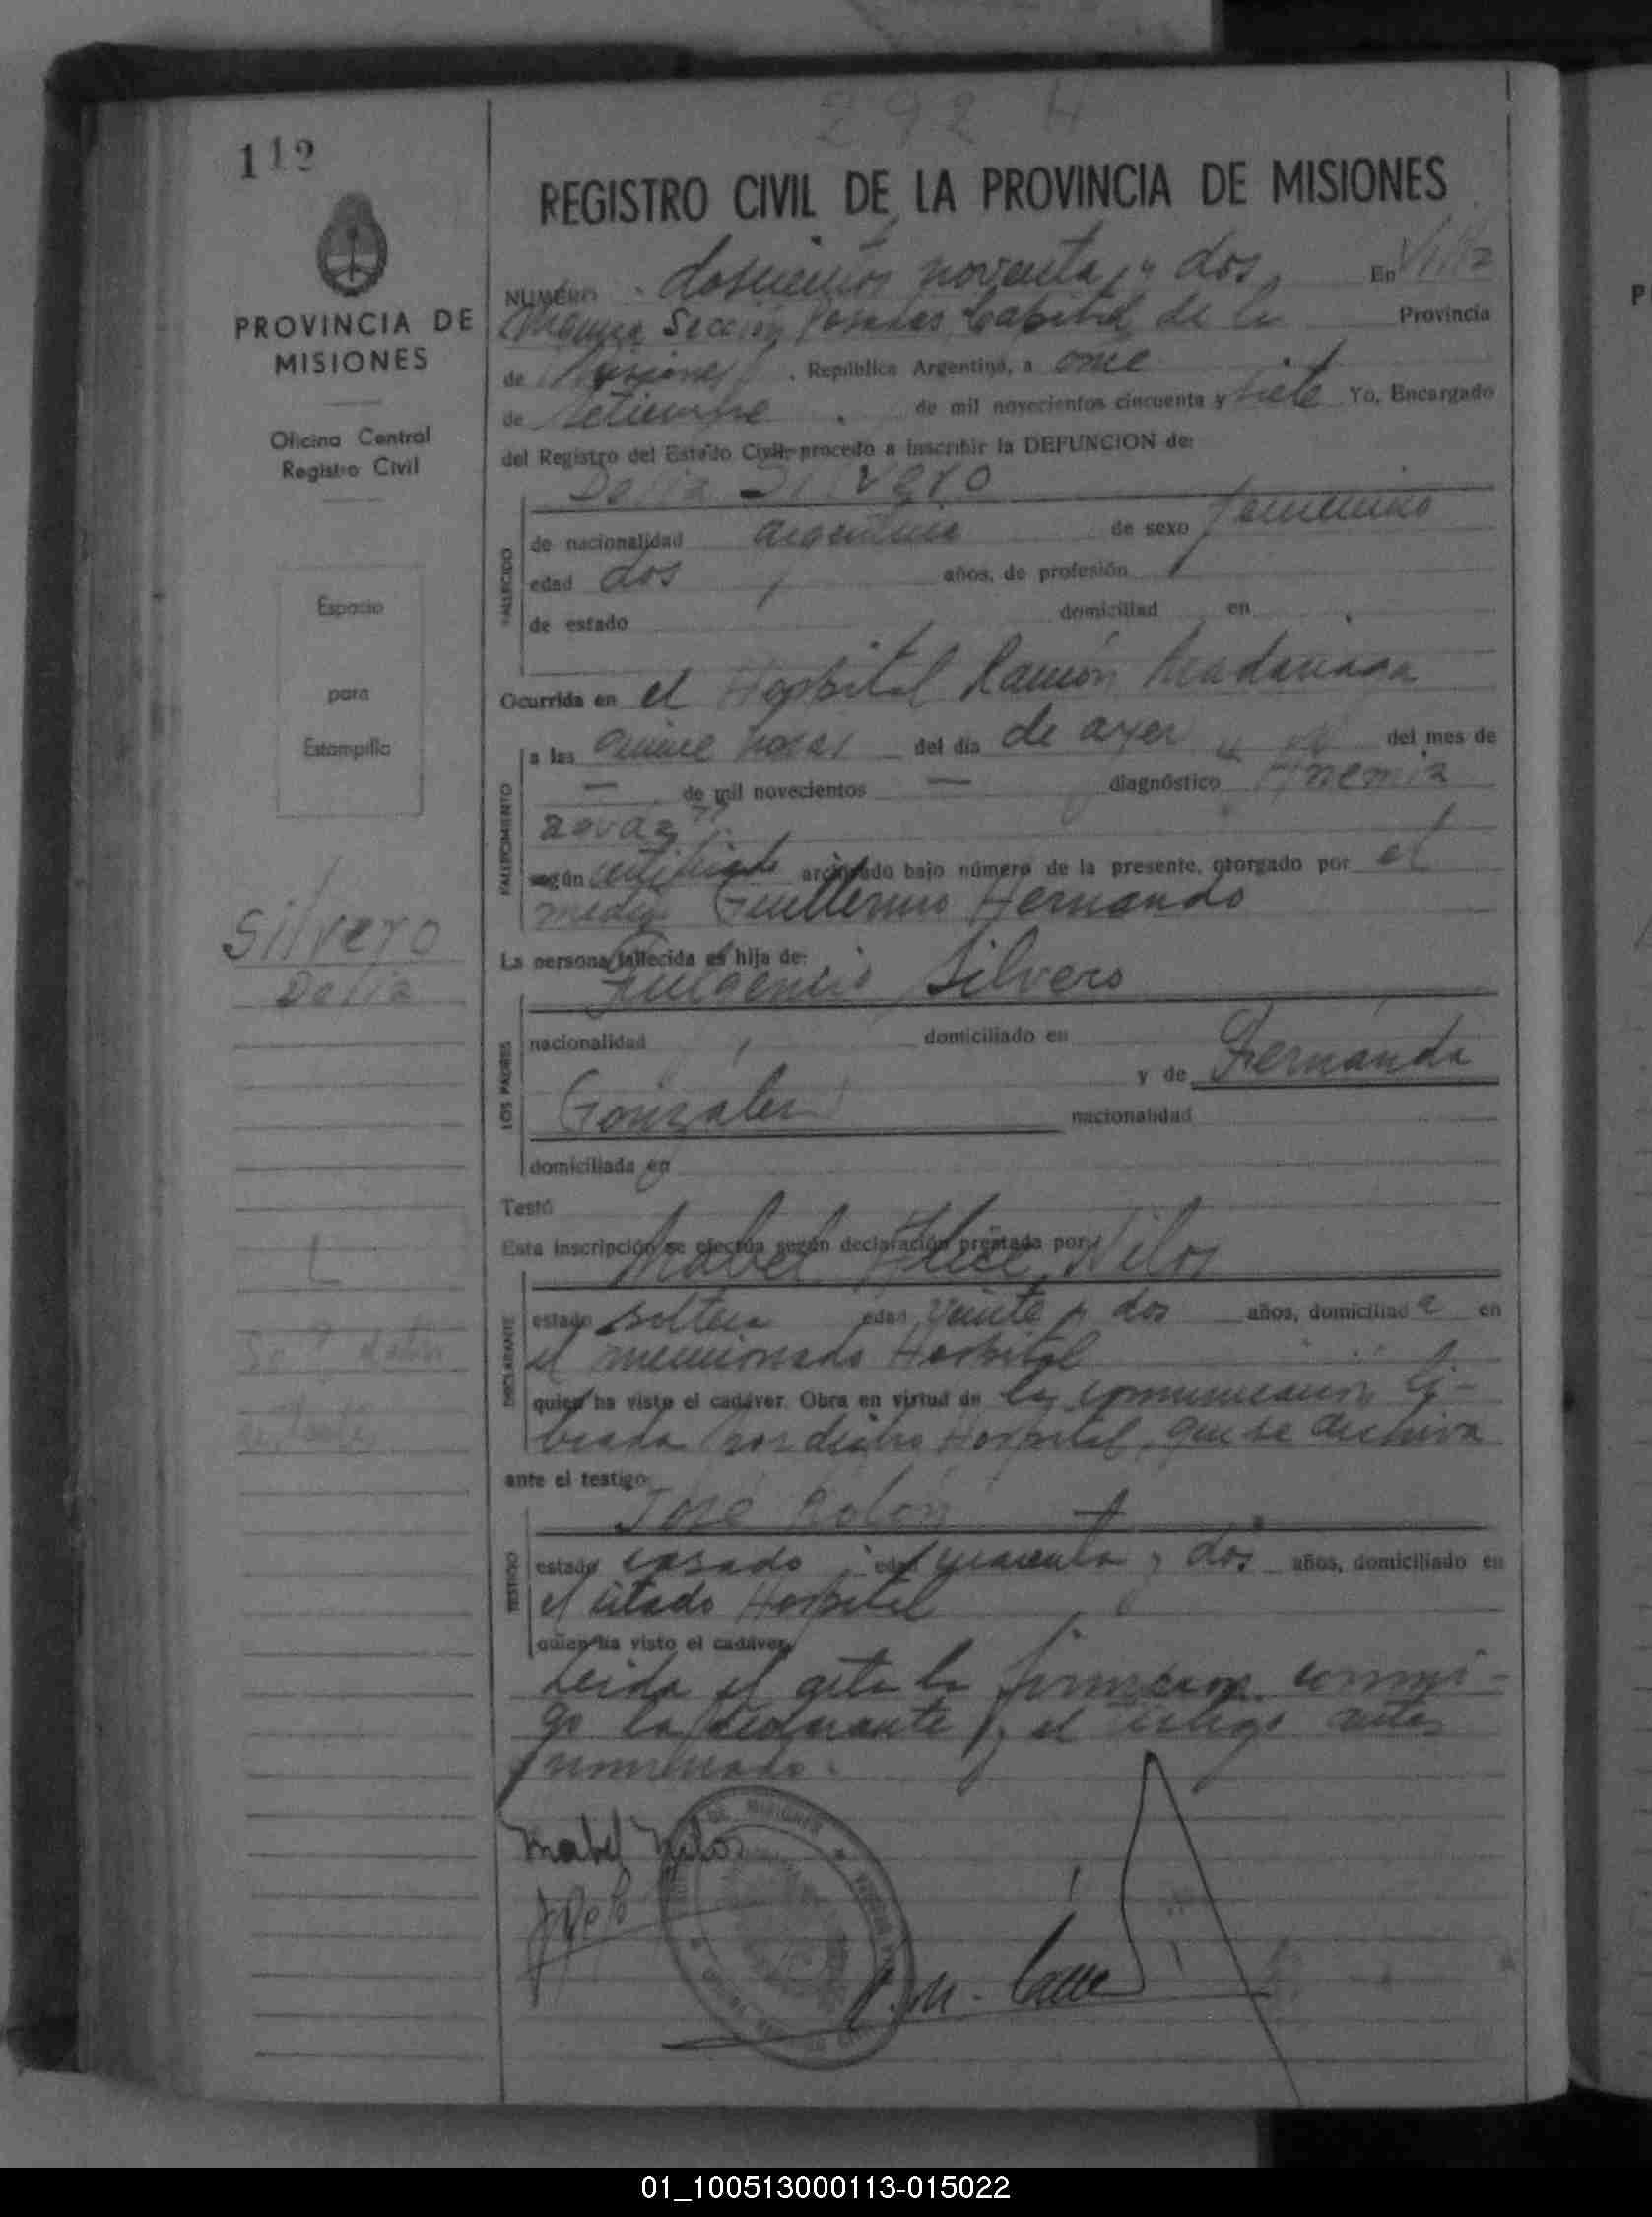 292 H
112
REGISTRO CIVIL DE LA PROVINCIA DE MISIONES
PROVINCIA DE
MISIONES
Oficina Central
Registro Civil
Espacio
para
Estampilla
Silvero
Delia
NUMERO doscientos noventa y dos En Villa
Sección Posadas Capital de la Provincia
de Misiones . República Argentina, a once
de Setiembre de mil novecientos cincuenta y siete Yo, Encargado
del Registro del Estado Civil procedo a inscribir la DEFUNCION de:
Delia Silvero
FALLECIDO
de nacionalidad argentina de sexo femenino
edad dos años, de profesión
de estado domiciliad en
Ocurrida en el Hospital Ramón Madariaga
FALLECIMIENTO
a las quince horas del día de ayer del mes de
— de mil novecientos — diagnóstico Anemia
aguda
según certificado archivado bajo número de la presente, otorgado por el
médico Guillermo Hernando
La persona fallecida es hija de:
Fulgencio Silvero
LOS PADRES
nacionalidad domiciliado en
y de Fernanda
Gonzalez nacionalidad
domiciliada en
Testó
Esta inscripción se efectúa según declaración prestada por:
Mabel Alice Nilos
DECLARANTE
estado soltera edad veinte y dos años, domiciliad a en
el mencionado Hospital
quien ha visto el cadáver. Obra en virtud de la comunicación li-
brada por dicho Hospital, que se archiva
ante el testigo:
José Rolón
TESTIGO
estado casado edad cuarenta y dos años, domiciliado en
el citado Hospital
quien ha visto el cadáver.
Leida el acta la firmaron conmi-
go la declarante y el testigo antes
nominado.
Mabel Nilos
01_100513000113-015022